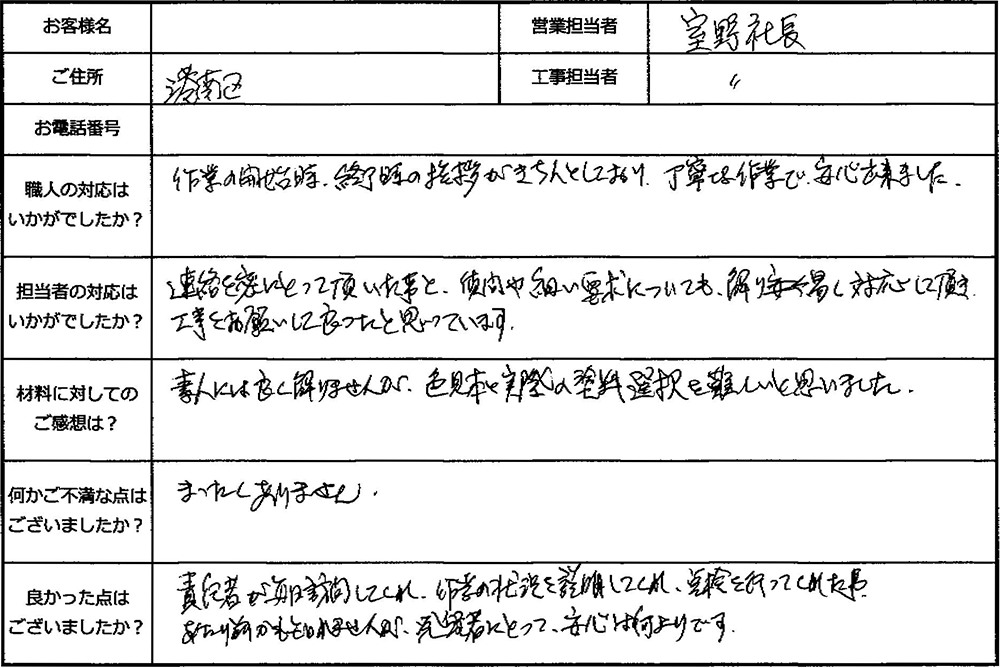 お客様名 営業担当者 室野社長
ご住所 港南区 工事担当者 〃
お電話番号
職人の対応は
いかがでしたか？
作業の開始時、終了時の挨拶がきちんとしており、丁寧な作業で、安心出来ました。
担当者の対応は
いかがでしたか？
連絡を密にとって頂いた事と、質問や細い要求についても、解り安く易く対応して頂き、
工事をお願いして良かったと思っています。
材料に対しての
ご感想は？
素人には良く解りませんが、色見本と実際の塗料選択を難しいと思いました。
何かご不満な点は
ございましたか？
まったくありません。
良かった点は
ございましたか？
責任者が毎日訪問してくれ、作業の状況を説明してくれ、点検を行ってくれた事
あたり前かもしれませんが、発注者にとって、安心は何よりです。